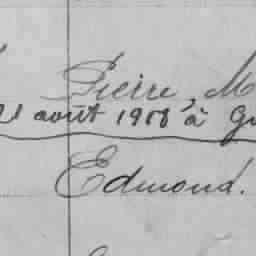 Pierre, M
21 août 1908 à Gu
Edmond.